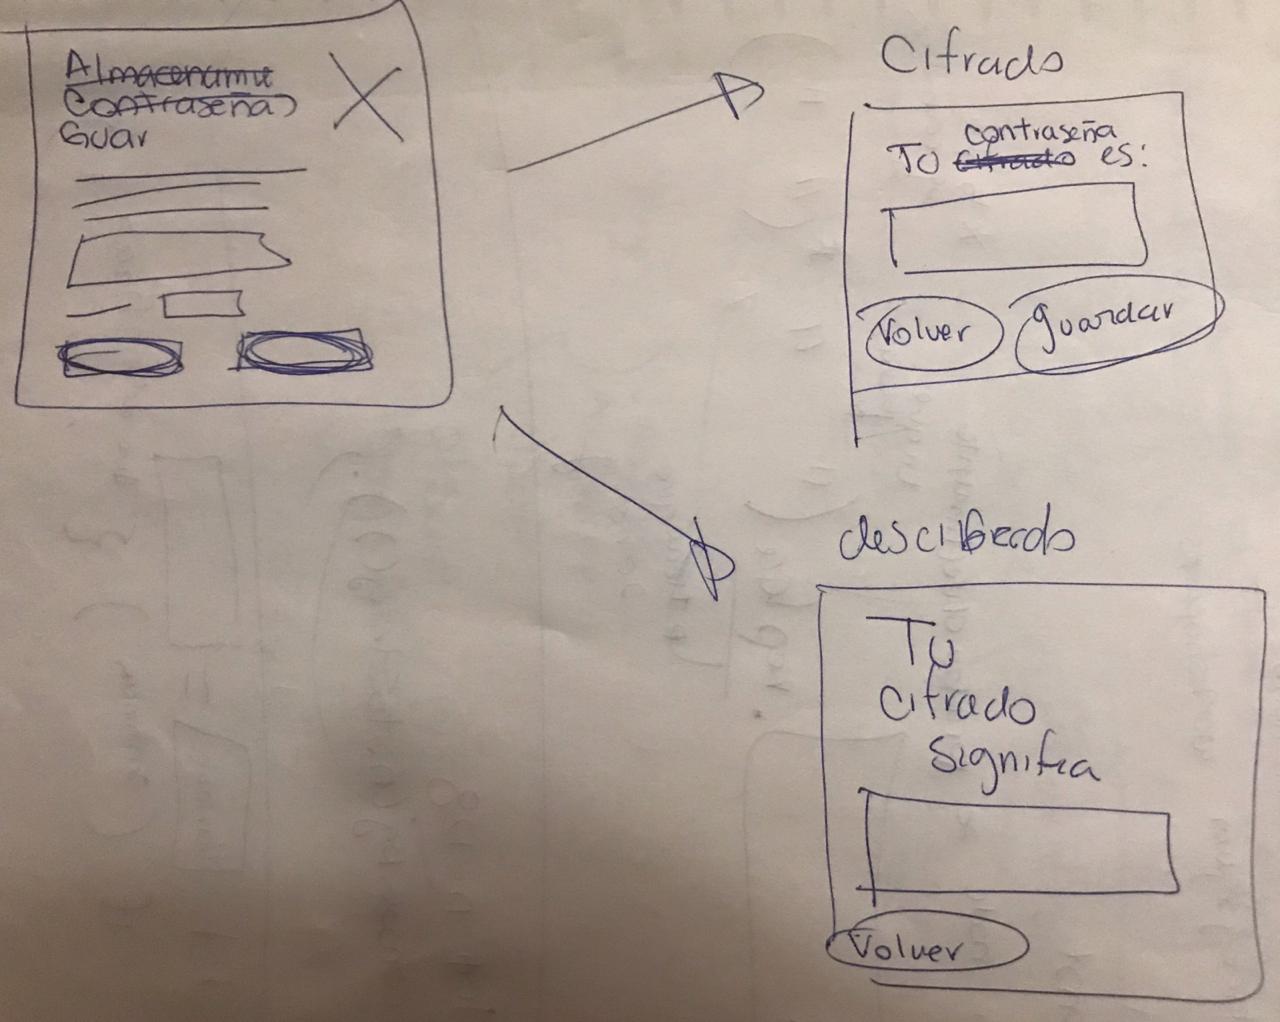 Almacenamie
Contraseñas
Guar
Cifrado
contraseña
Tu cifrado es:
Volver
guardar
descifrado
Tu
cifrado
Signifia
Volver